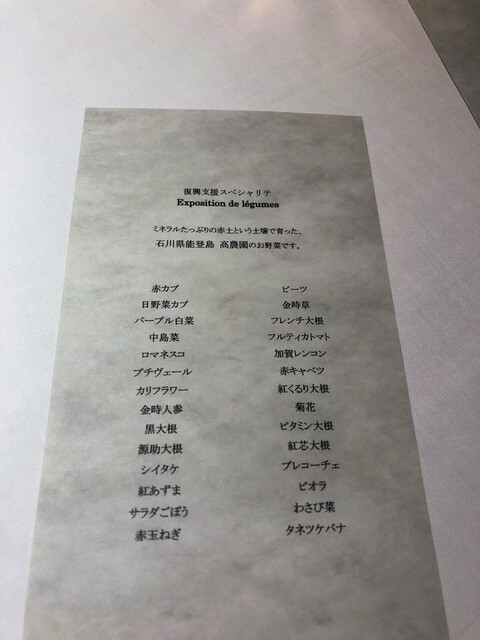 復興支援スペシャリテ
Exposition de légumes
ミネラルたっぷりの赤土という土壌で育った、
石川県能登島 高農園のお野菜です。
赤カブ ビーツ
日野菜カブ 金時草
パープル白菜 フレンチ大根
中島菜 フルティカトマト
ロマネスコ 加賀レンコン
プチヴェール 赤キャベツ
カリフラワー 紅くるり大根
金時人参 菊花
黒大根 ビタミン大根
源助大根 紅芯大根
シイタケ プレコーチェ
紅あずま ビオラ
サラダごぼう わさび菜
赤玉ねぎ タネツケバナ